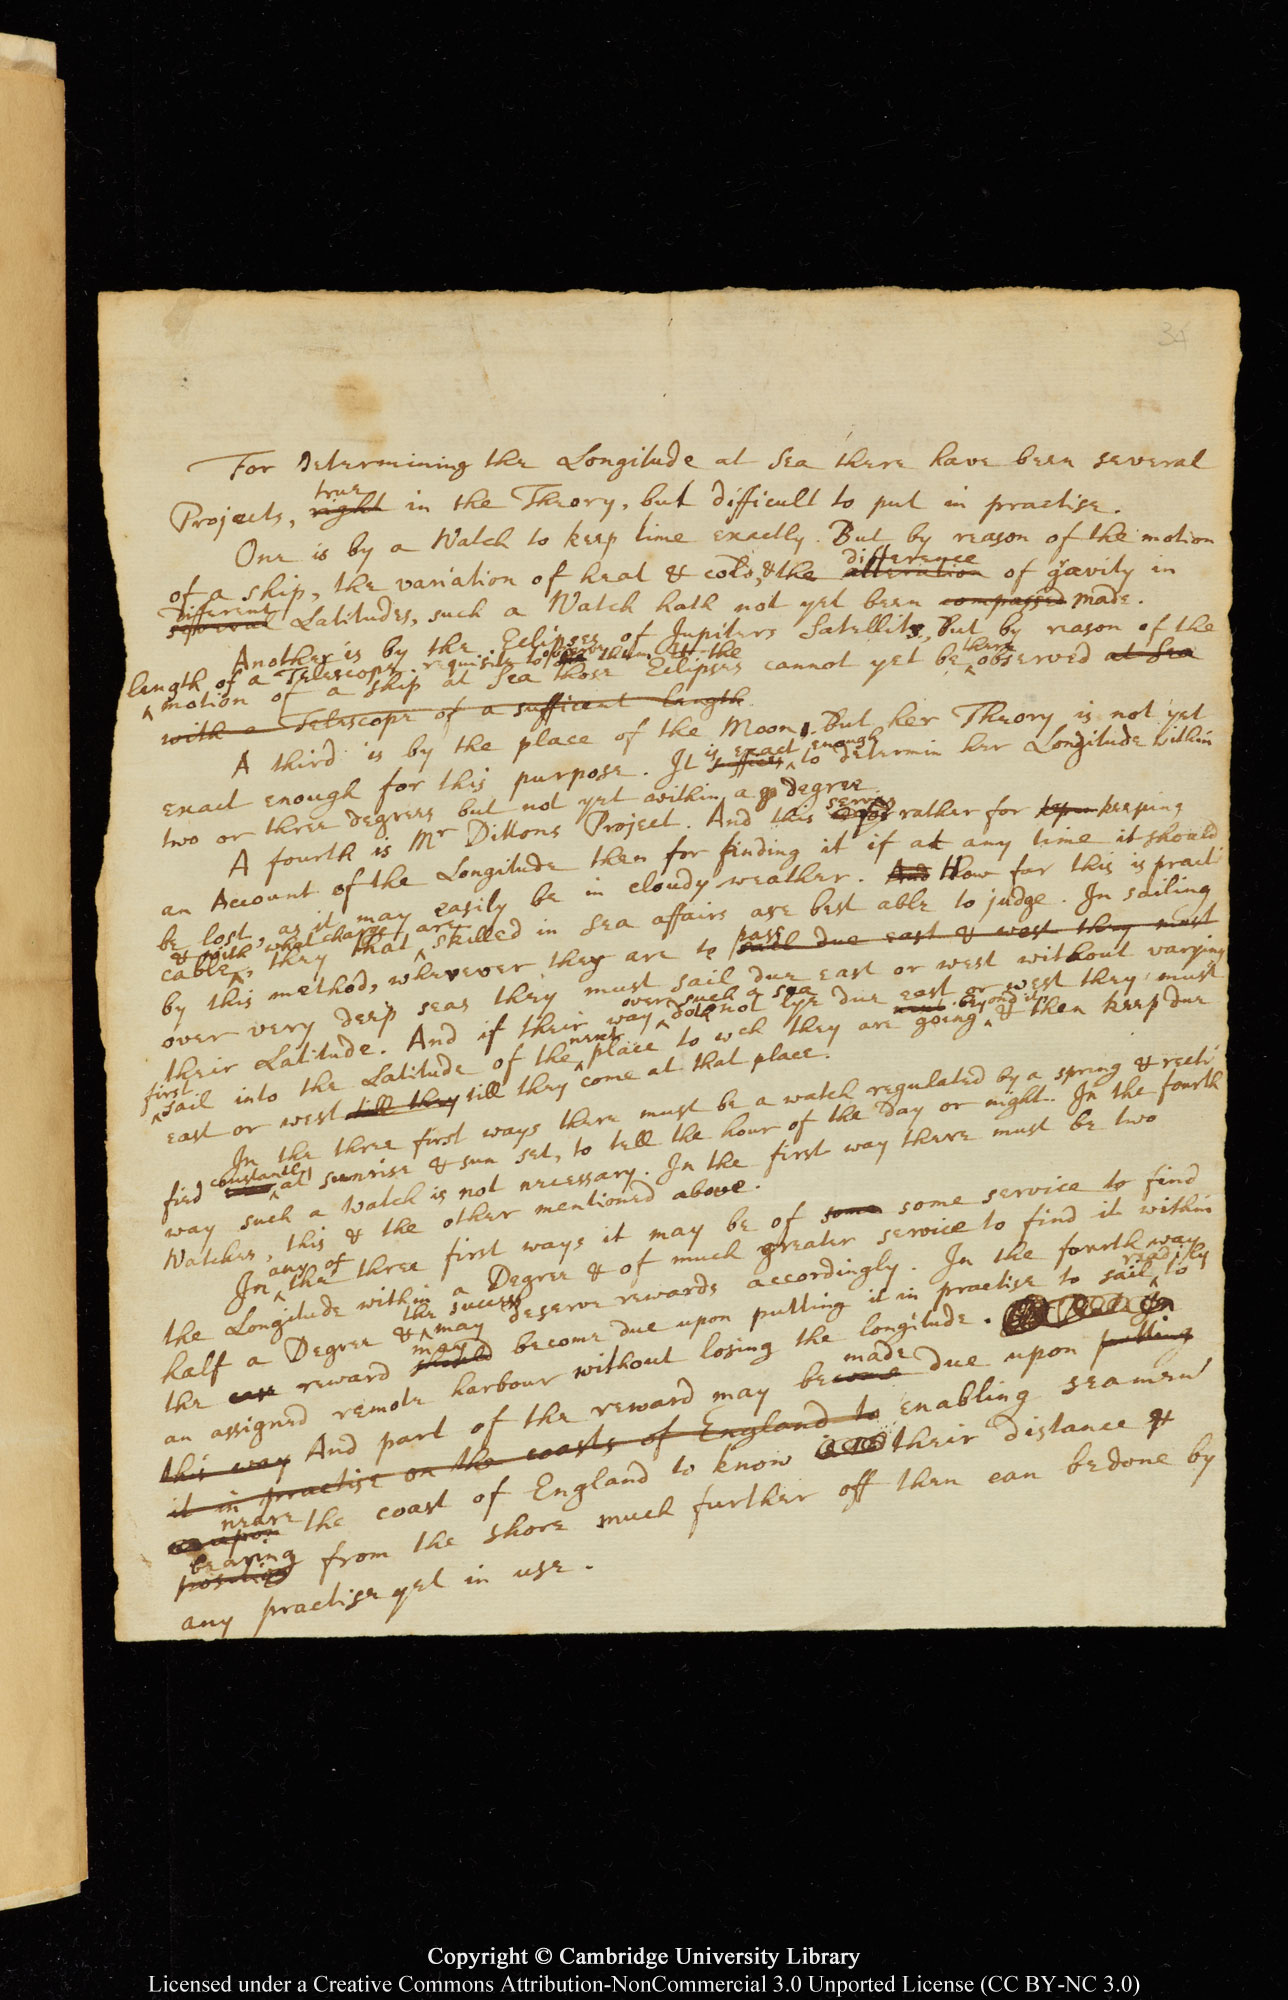 34
For Determining the Longitude at Sea there have been several
Projects, right true in the Theory, but difficult to put in practise.
One is by a Watch to keep time exactly. But by reason of the motion
of a ship, the variation of heat & cold, & the alteration difference of gravity in
several different Latitudes, such a Watch hath not yet been compassed made.
Another is by the Eclipses of Jupiters Satellits, But by reason of the
length of a Telescope requisite to observe them & the
motion of a ship at Sea those Eclipses cannot yet be there observed at Sea
with a Telescope of a sufficient length
A third is by the place of the Moon. But her Theory is not yet
exact enough for this purpose. It suffices is exact enough to determin her Longitude within
two or three degrees but not yet within a degree.
A fourth is Mr Dittons Project. And this serves rather for keeping
an Account of the Longitude then for finding it if at any time it should
be lost, as it may easily be in cloudy weather. And How far this is practi
cable, & with what charge, they that are skilled in sea affairs are best able to judge. In sailing
by this method, whenever they are to sail due east & west they must pass
over very deep seas they must sail due east or west without varying
their Latitude. And if their way over such a sea doth not lye due east or west they must
first sail into the Latitude of the next place to wch they are going next beyond it, & then keep due
east or west till they till they come at that place.
In the three first ways there must be a watch regulated by a spring & recti
fied constantly at sunrise & sun set, to tell the hour of the day or night. In the fourth
way such a Watch is not necessary. In the first way there must be two
Watches, this & the other mentioned above.
In any of the three first ways it may be of some some service to find
the Longitude within a Degree & of much greater service to find it within
half a Degree & the success may deserve rewards accordingly. In the fourth way
the case reward should may become due upon putting it in practise to sail readily to
an assigned remote harbour without losing the longitude.
this way And part of the reward may become made due upon putting
it in practise on the coasts of England to enabling seamen
upon neare the coast of England to know their distance &
position bearing from the shore much further off then can be done by
any practise yet in use.
Copyright © Cambridge University Library
Licensed under a Creative Commons Attribution-NonCommercial 3.0 Unported License (CC BY-NC 3.0)